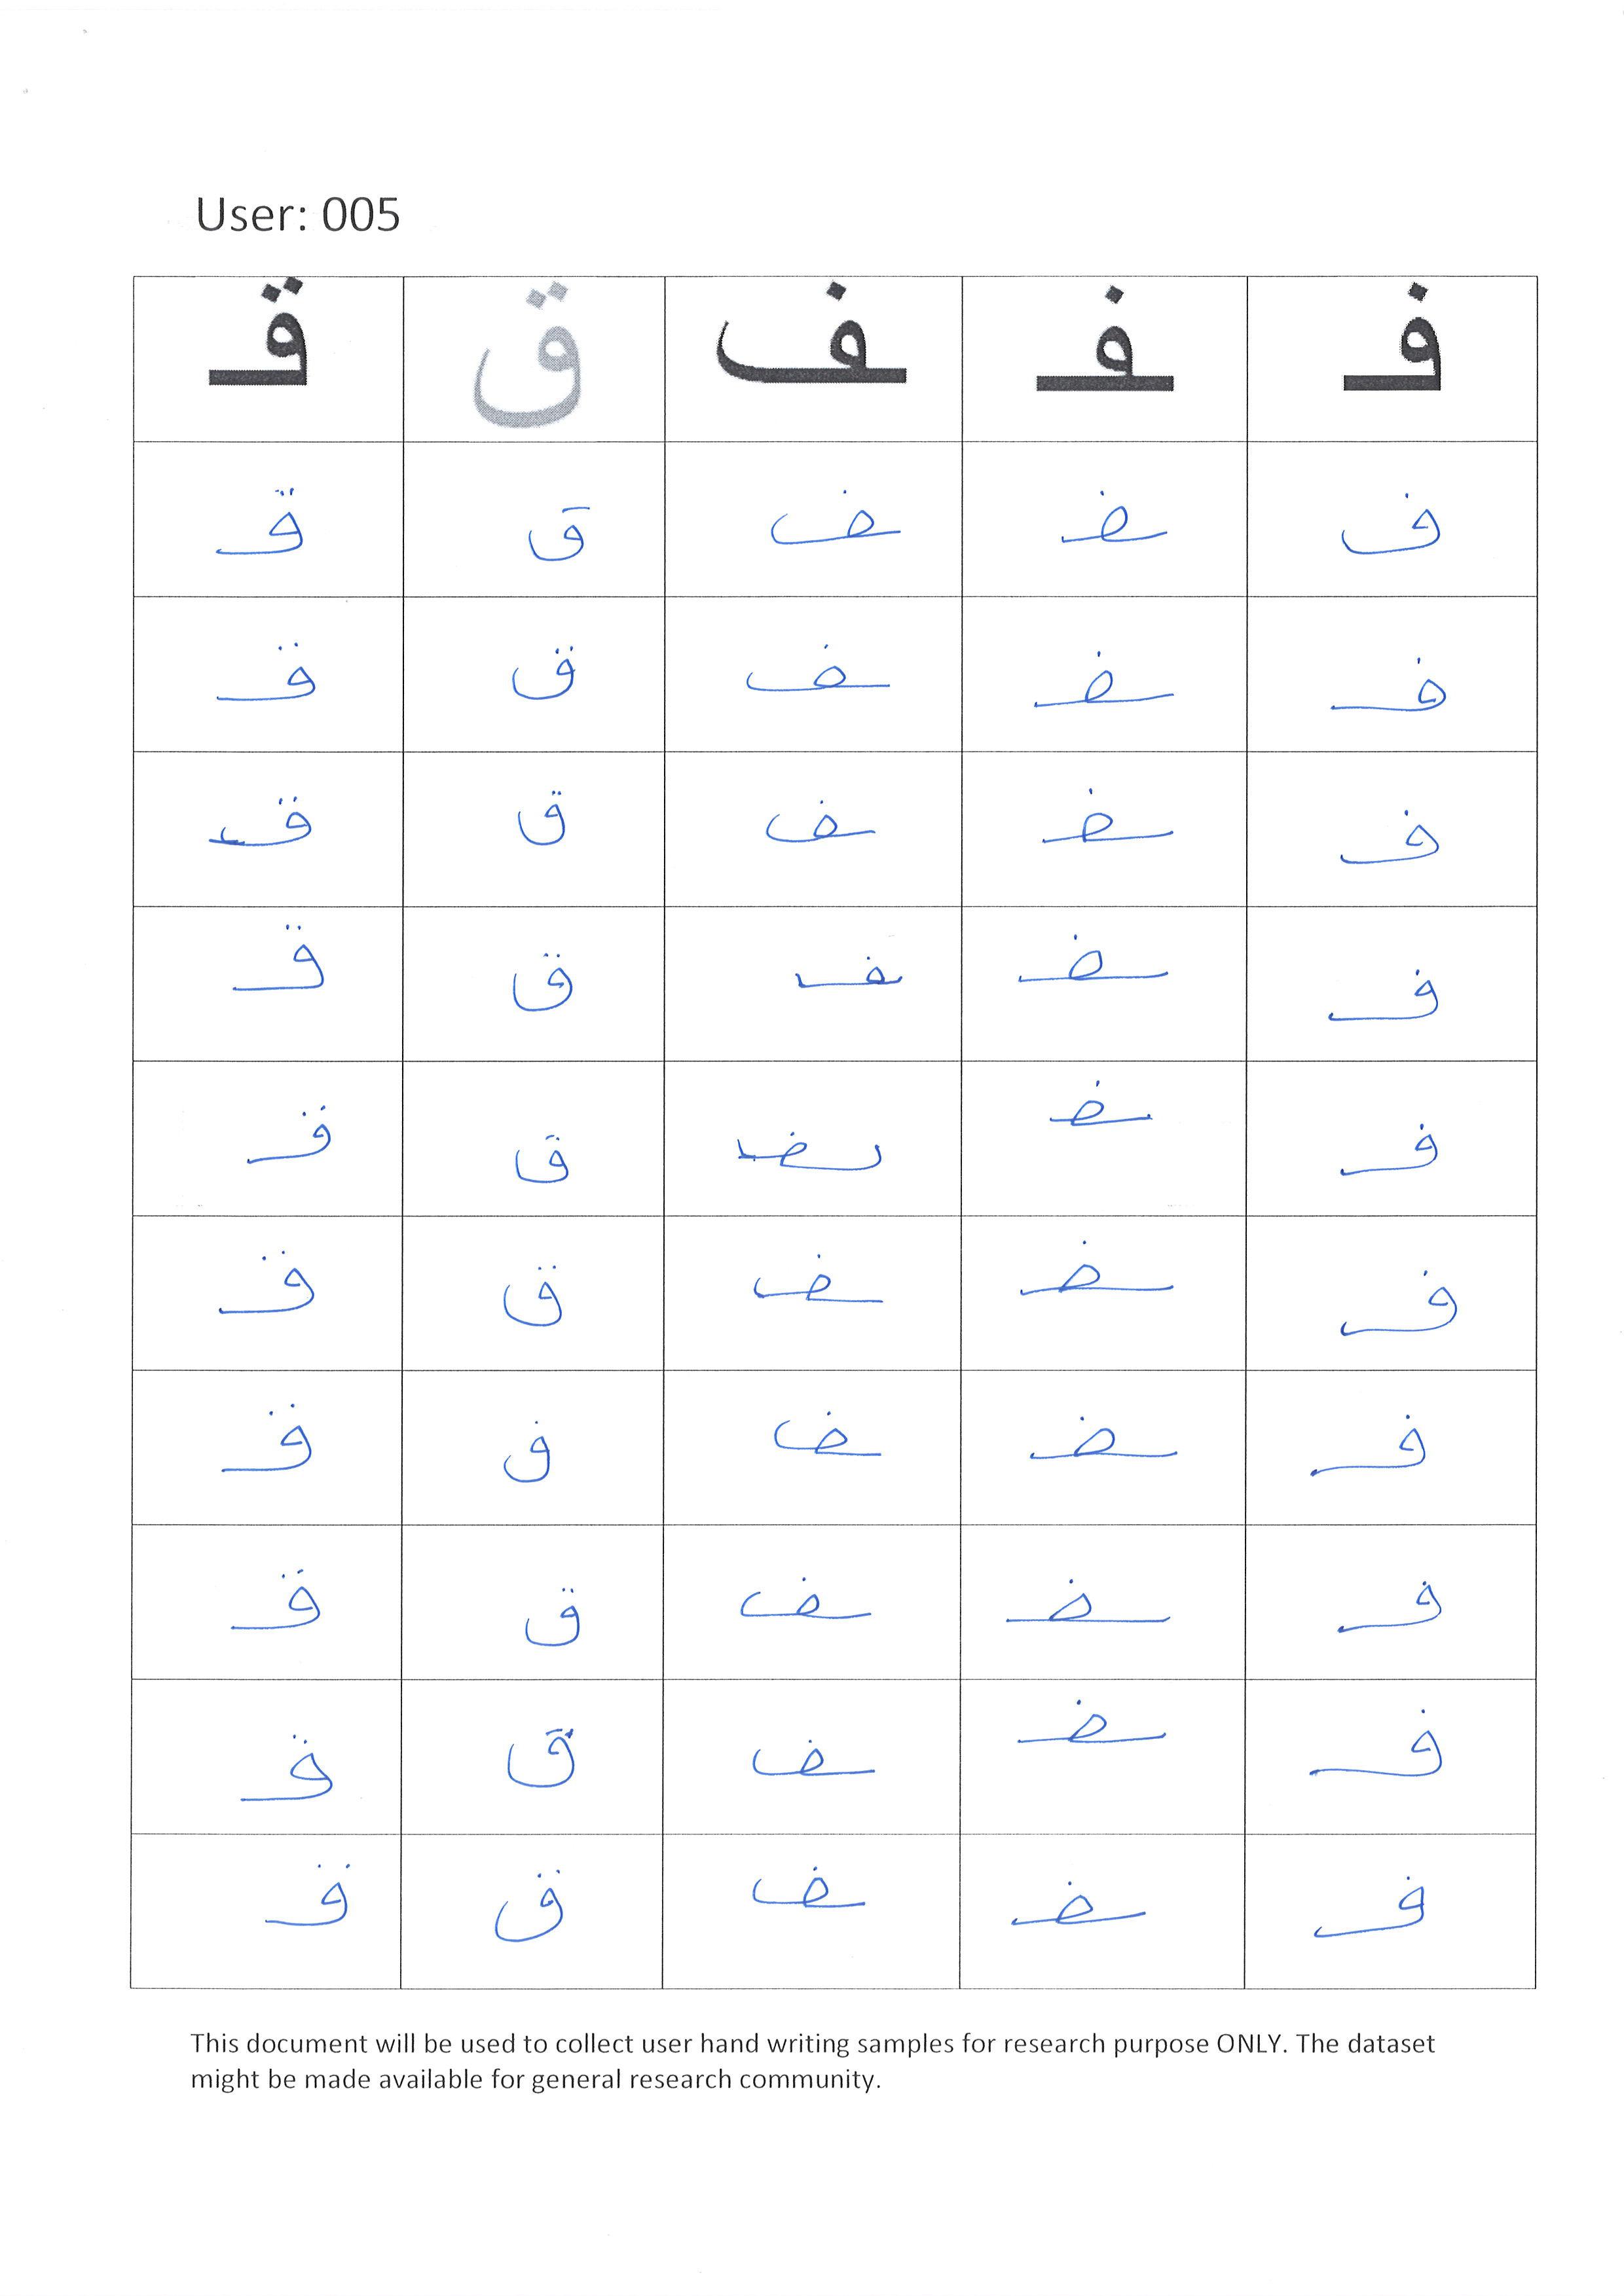 User: 005
فـ ـفـ ـف ق قـ
ف ـفـ ـف ق قـ
فـ ـفـ ـف ق قـ
فـ ـفـ ـف ق قـ
فـ ـفـ ـف ق قـ
فـ ـفـ ـف ق قـ
فـ ـفـ ـف ق قـ
فـ ـفـ ـف ف قـ
فـ ـفـ ـف ق قـ
فـ ـفـ ـف ق قـ
فـ ـفـ ـف ق قـ
This document will be used to collect user hand writing samples for research purpose ONLY. The dataset
might be made available for general research community.